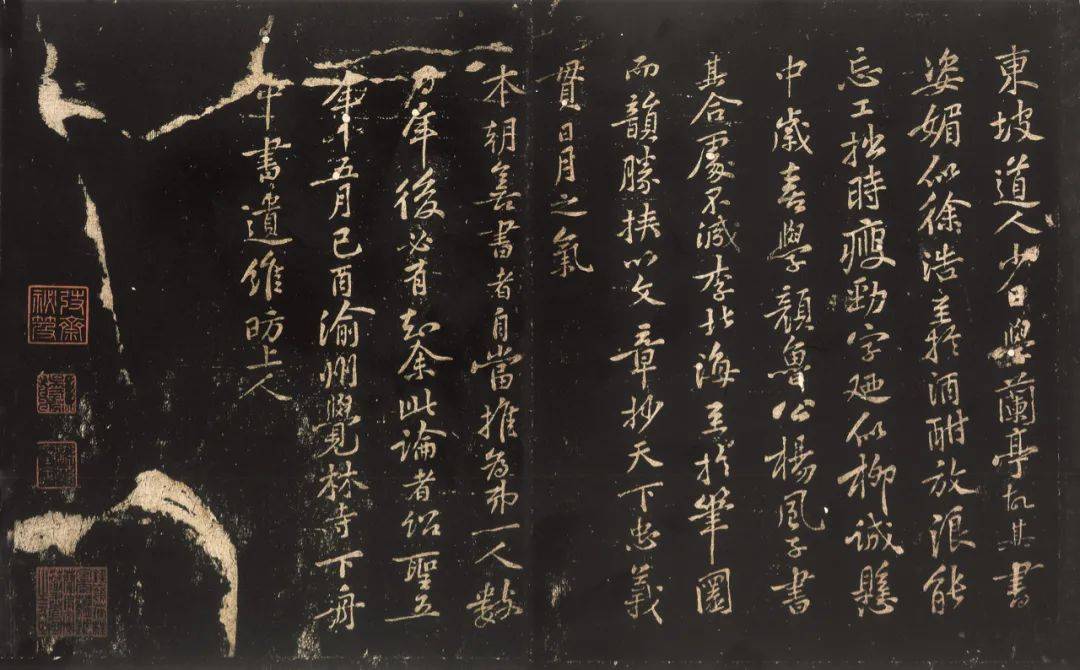 東坡道人少日學蘭亭故其書
姿媚似徐浩至於酒酣放浪能
忘工拙時瘦勁字廼似柳誠懸
中歲喜學顏魯公楊風子書
其合處不減李北海至於筆圜
而韻勝挟以文章抄天下忠義
貫日月之氣
本朝善書者自當推為苐一人數
百年後必有知余此論者紹聖五
年五月己酉渝州覺林寺下舟
中書遺維昉上人